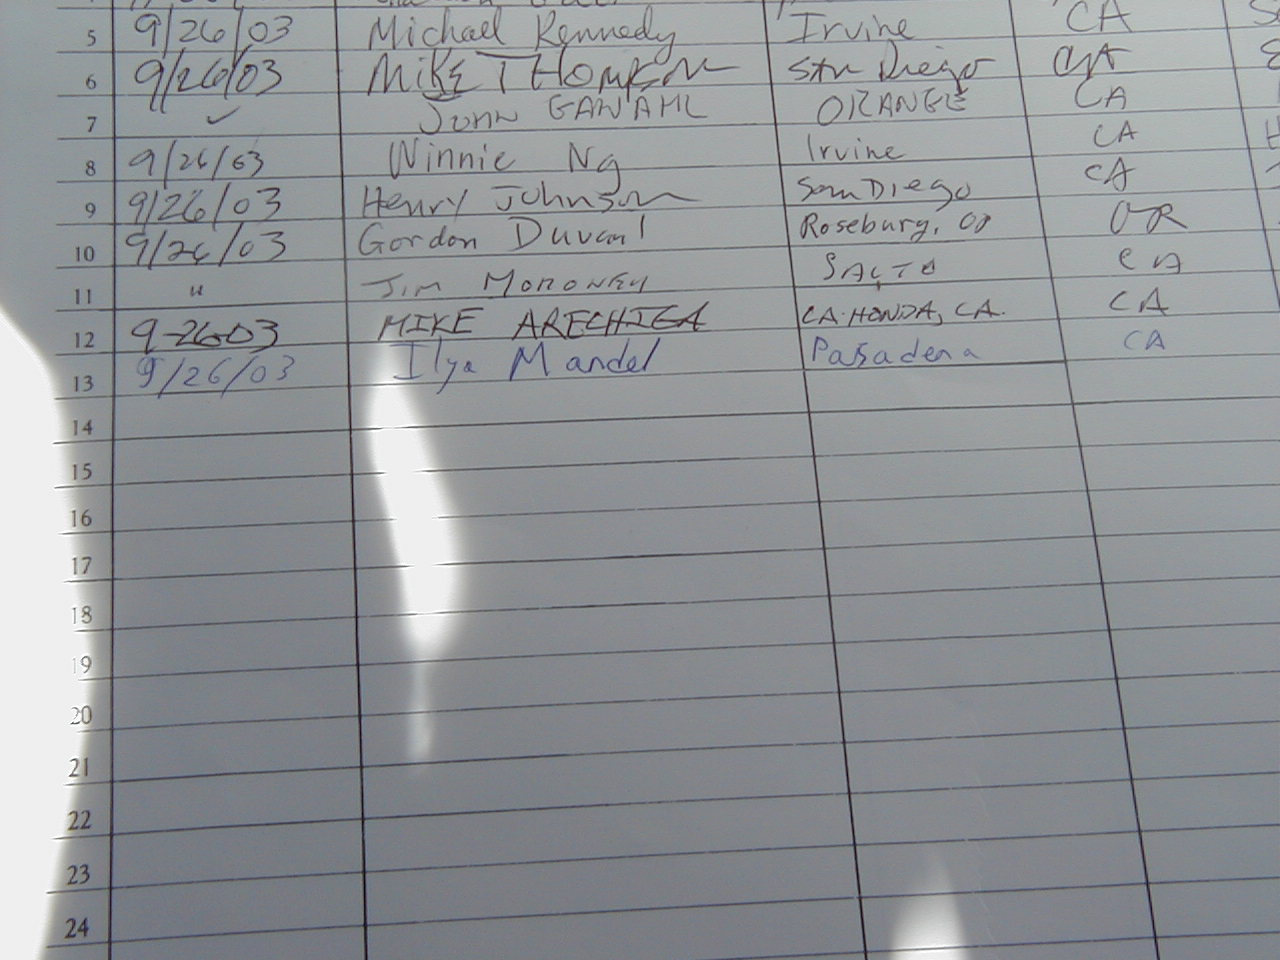 5 9/26/03 Michael Kennedy Irvine CA
6 9/26/03 MIKE THOMPSON San Diego CA
7 ✓ JOHN GANAHL ORANGE CA
8 9/26/03 Winnie Ng Irvine CA
9 9/26/03 Henry Johnson San Diego CA
10 9/26/03 Gordon Duvall Roseburg, OR OR
11 " JIM MORONEY SACTO CA
12 9-26-03 MIKE ARECHIGA LA HONDA, CA. CA
13 9/26/03 Ilya Mandel Pasadena CA
14
15
16
17
18
19
20
21
22
23
24